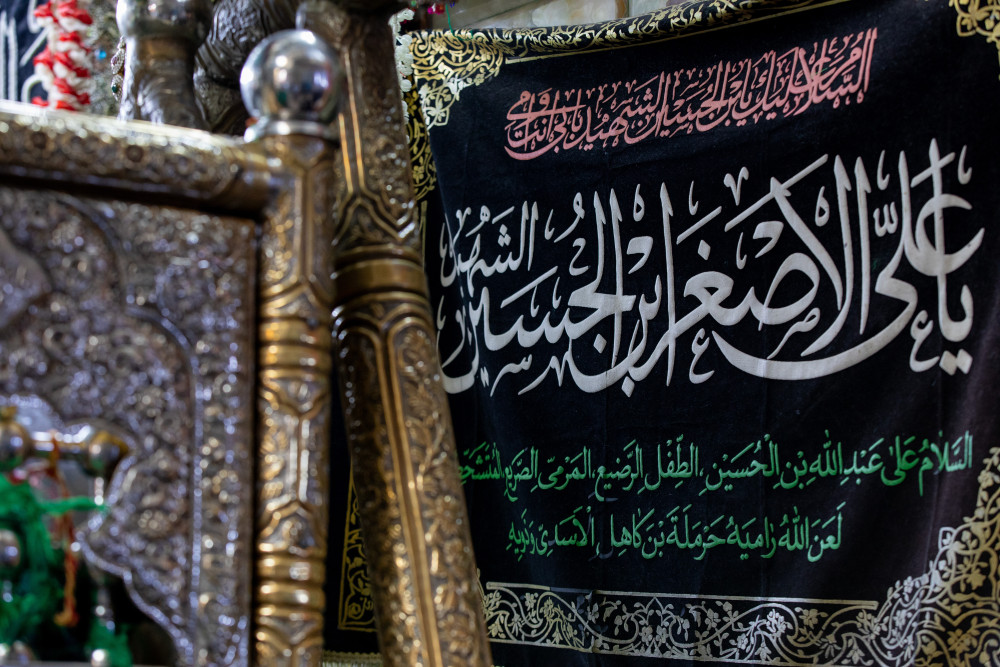 السَّلامُ عَلَيْكَ يَابْنَ الْحُسَيْنِ الشَّهيدِ بِأَبي أَنْتَ وَأُمّي
يا عَلِيَّ الْأَصْغَرِ ابْنِ الْحُسَيْنِ الشَّهيدِ
السَّلامُ عَلىٰ عَبْدِاللهِ بْنِ الْحُسَيْنِ، الطِّفْلِ الرَّضيعِ، المَرْمِيِّ الصَّريعِ، المُتَشَحِّطِ
لَعَنَ اللهُ رامِيَهُ حَرْمَلَةَ بْنَ كاهِلِ الْأَسَدِيِّ وَذَويهِ